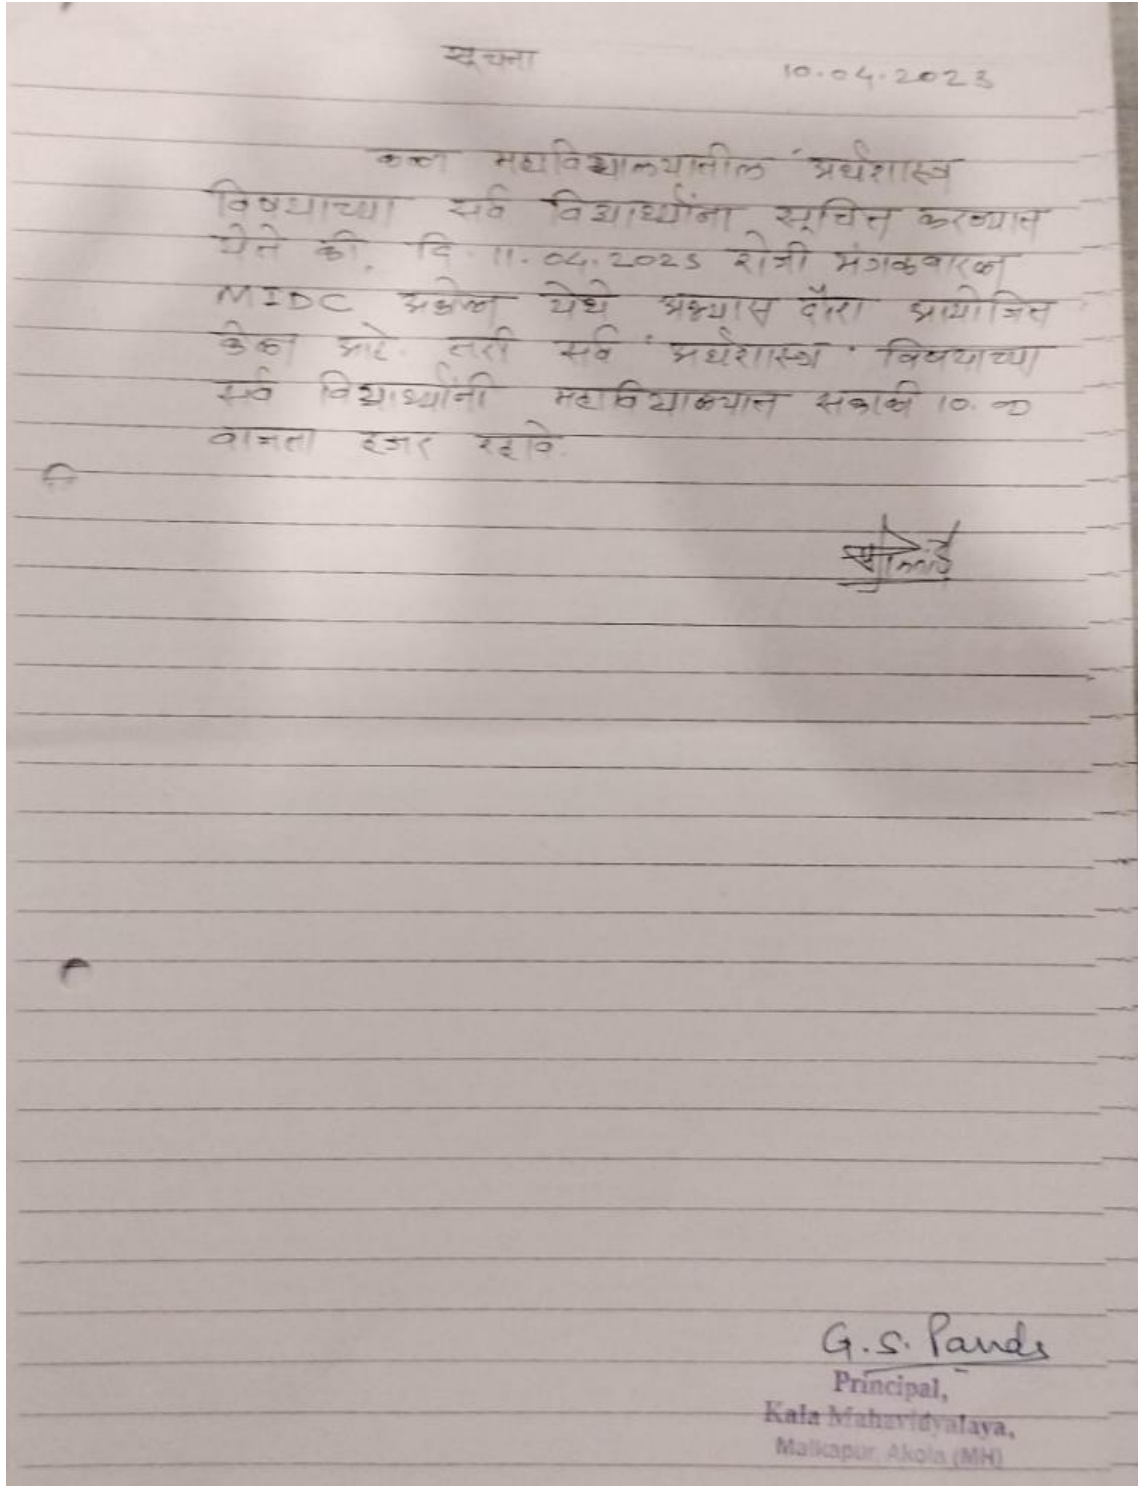 सूचना
10.04.2023
कला महाविद्यालयातील अर्थशास्त्र
विषयाच्या सर्व विद्यार्थ्यांना सूचित करण्यात
येते की, दि. 11.04.2023 रोजी मंगळवारला
MIDC अकोला येथे अभ्यास दौरा आयोजित
केला आहे. तरी सर्व 'अर्थशास्त्र' विषयाच्या
सर्व विद्यार्थ्यांनी महाविद्यालयात सकाळी 10.00
वाजता हजर रहावे.
G.S. Pande
Principal,
Kala Mahavidyalaya,
Malkapur, Akola (MH)